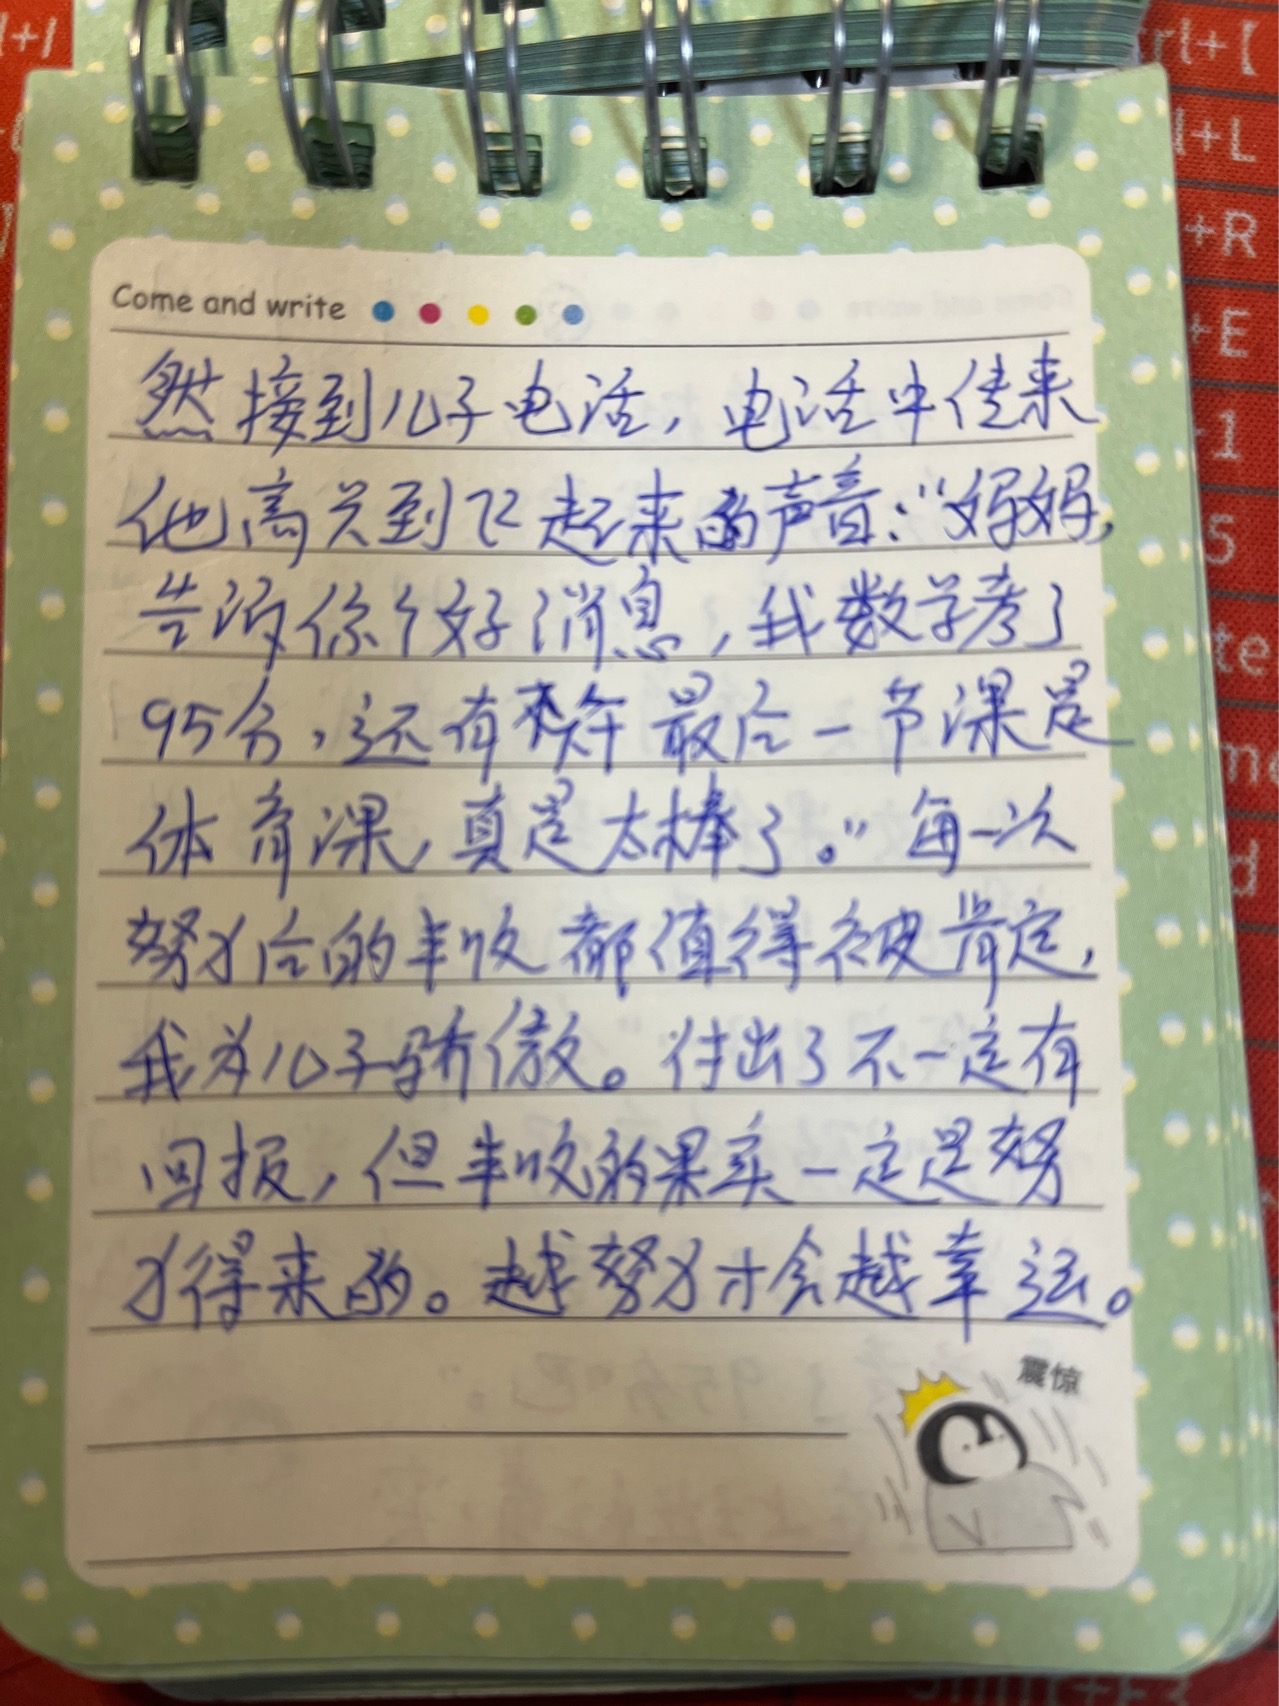 Come and write
然接到儿子电话，电话中传来
他高兴到飞起来的声音:“妈妈,
告诉你个好消息，我数学考了
95分，还有来年最后一节课是
体育课，真是太棒了。”每一次
努力后的丰收都值得被肯定，
我为儿子骄傲。付出了不一定有
回报，但丰收的果实一定是努
力得来的。越努力才会越幸运。
震惊
l+/
rl+[
l+L
+R
+E
1
5
te
d